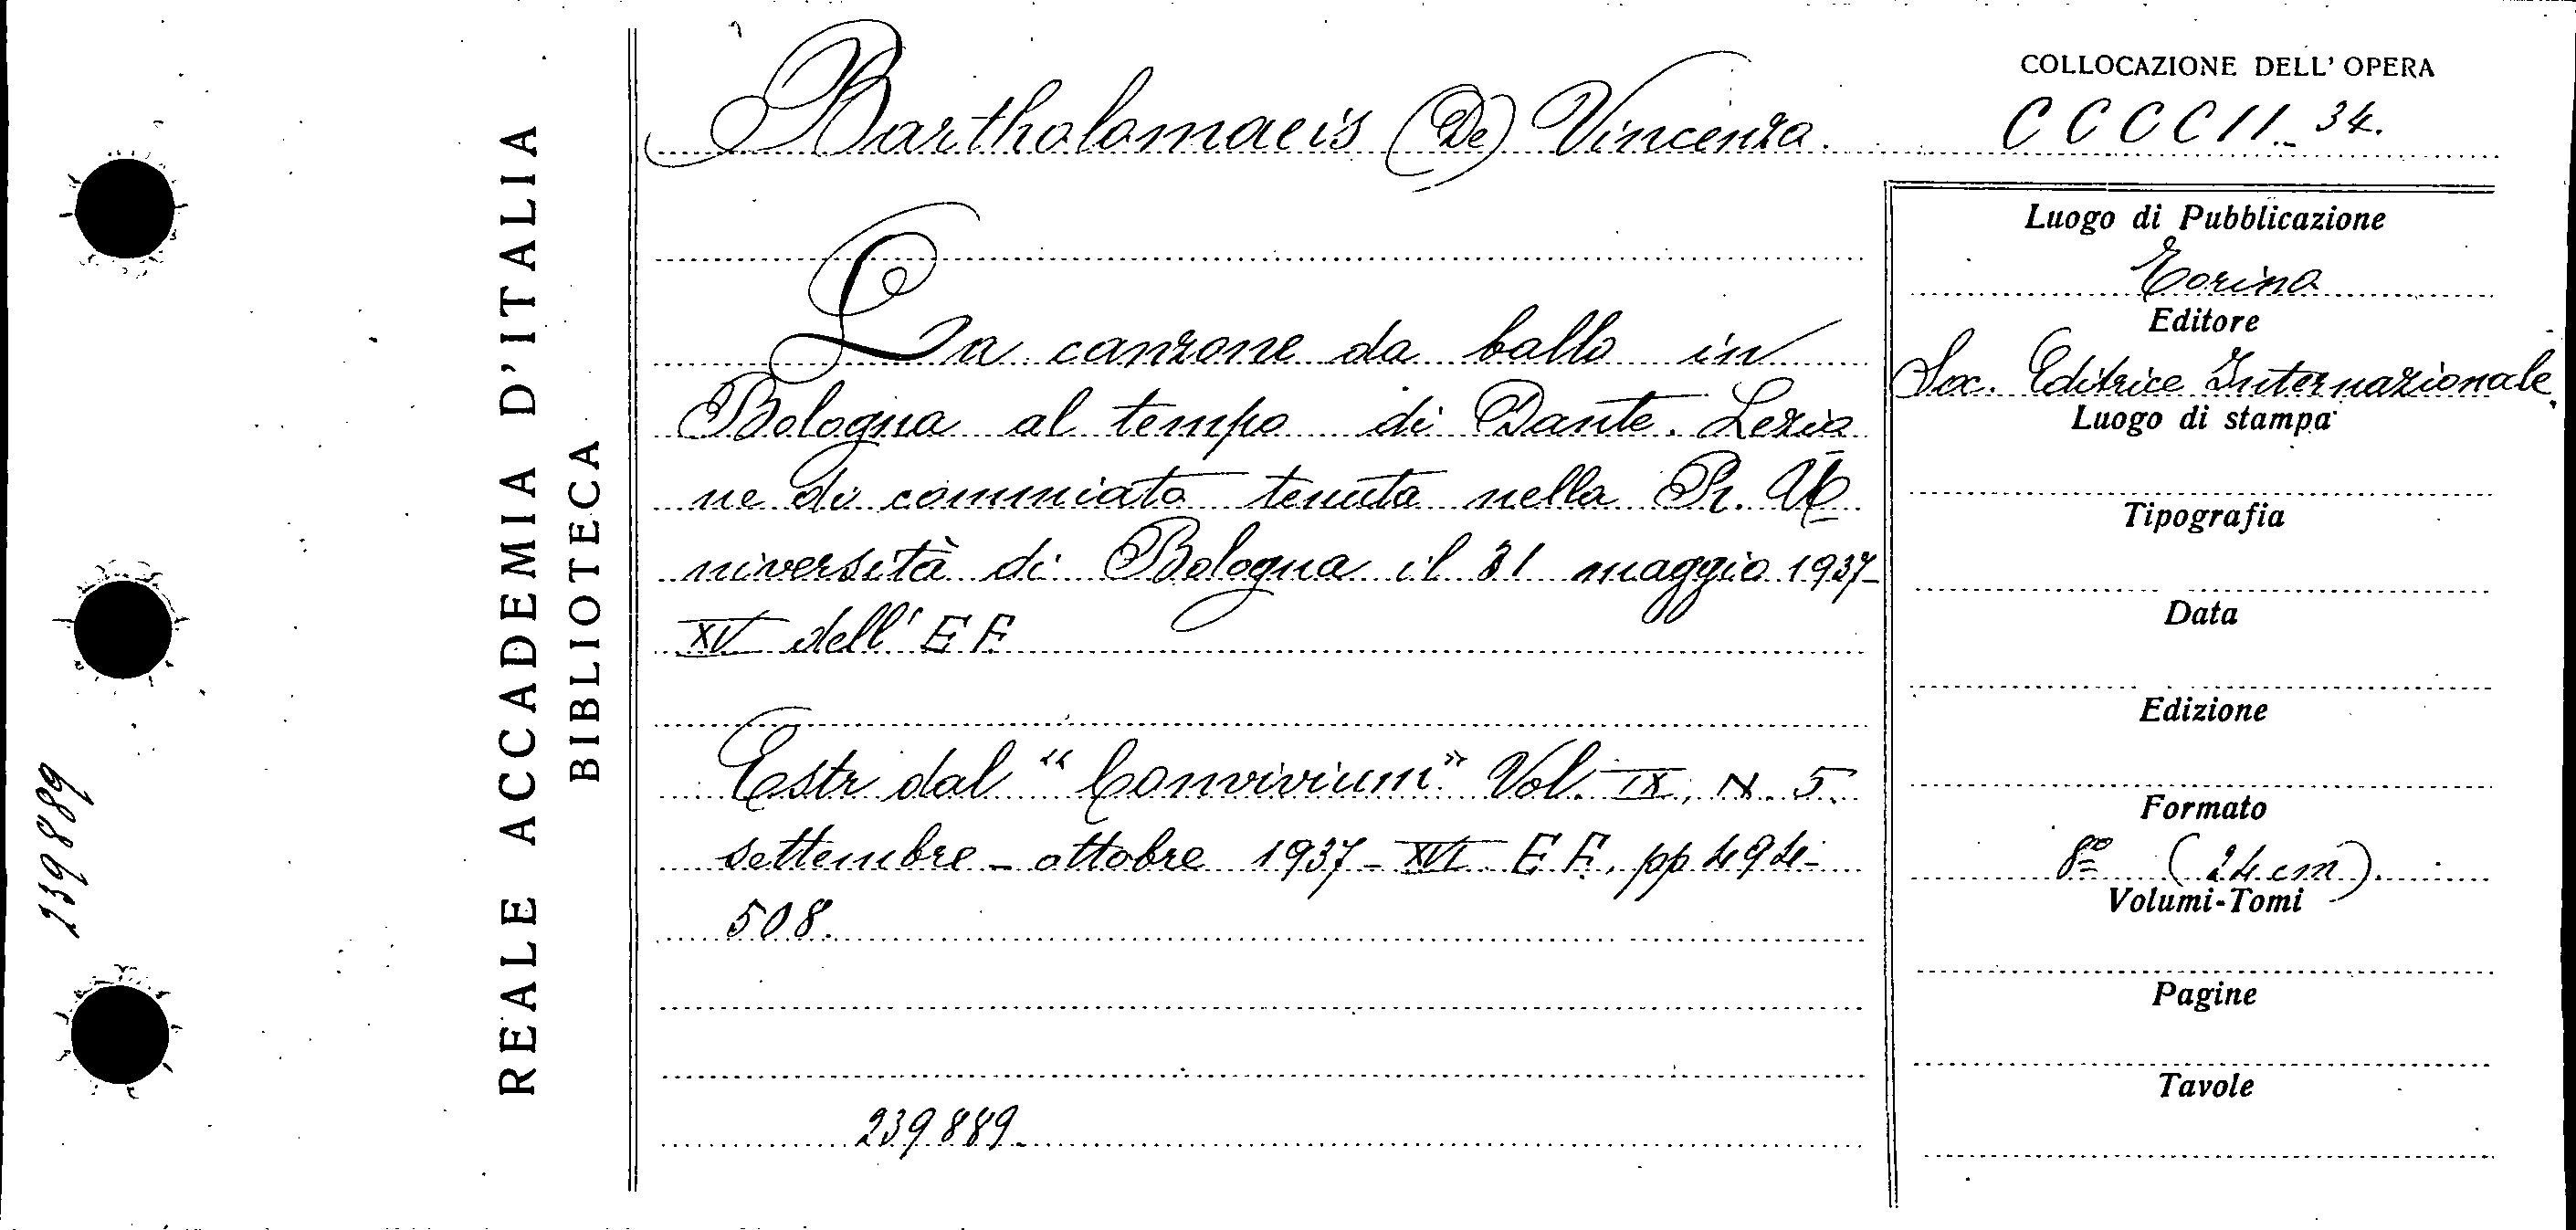 Bartholomaeis (De) Vincenzo.
La canzone da ballo in
Bologna al tempo di Dante. Lezio
ne di commiato tenuta nella R. U
niversità di Bologna il 31 maggio 1937-
XV dell' E F.
Estr dal "Convivium" Vol. IX, N. 5.
settembre - ottobre 1937 - XVI E F. pp 494-
508.
239889.
COLLOCAZIONE DELL' OPERA
CCCCII. 34.
Luogo di Pubblicazione
Torino
Editore
Soc. Editrice Internazionale.
Luogo di stampa
Tipografia
Data
Edizione
Formato
8º (24 cm).
Volumi-Tomi
Pagine
Tavole
REALE ACCADEMIA D'ITALIA
BIBLIOTECA
239889